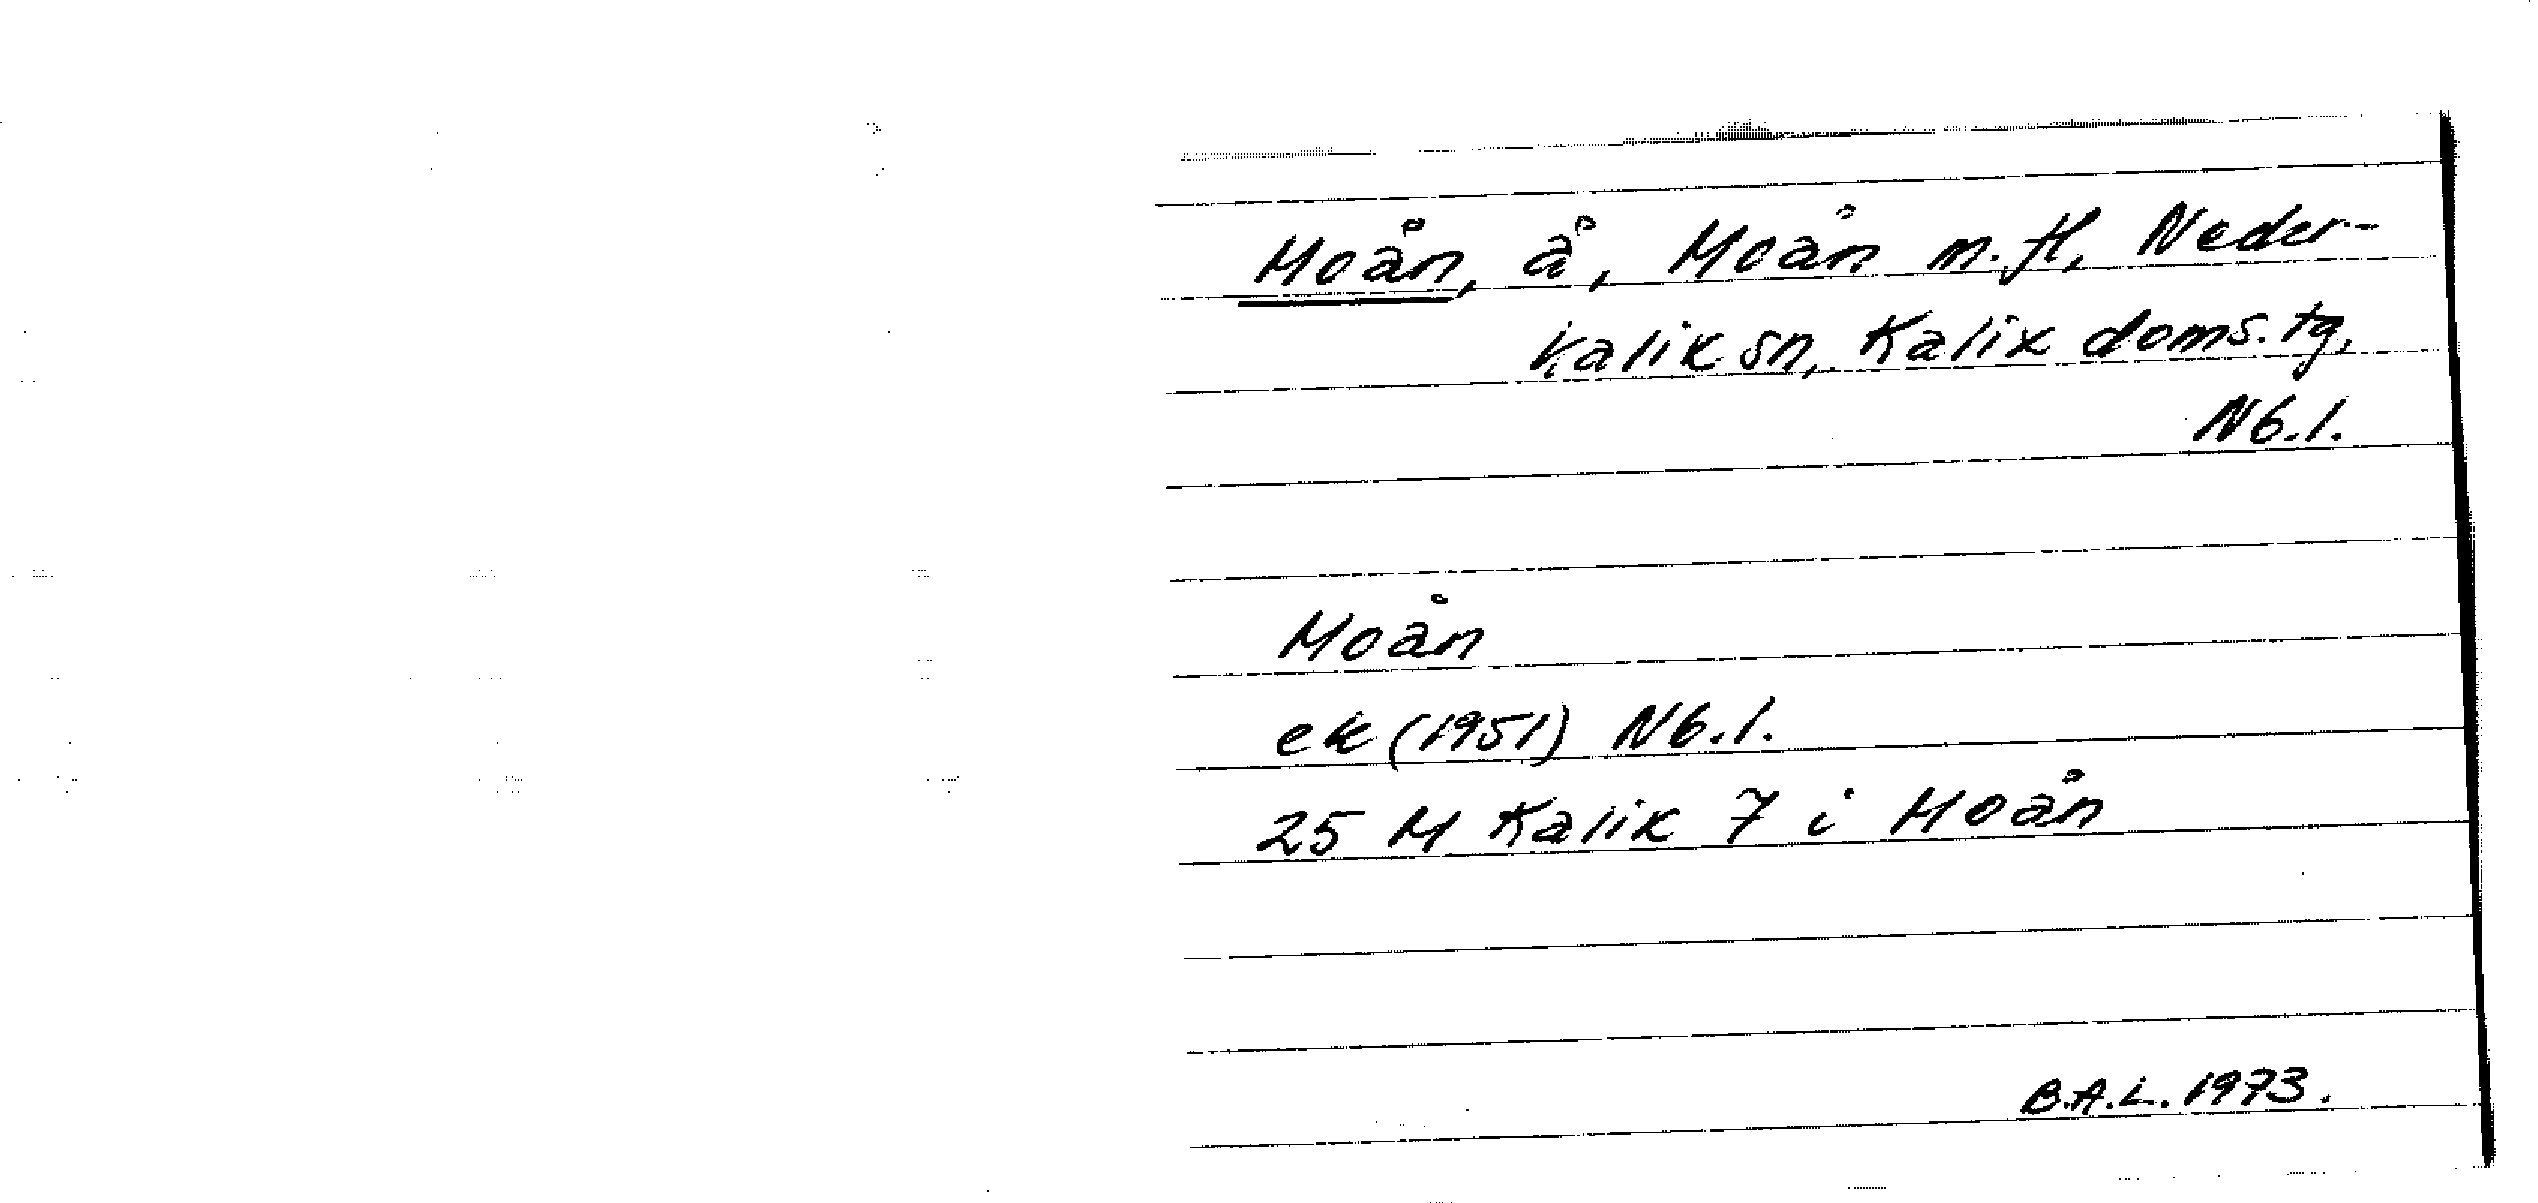 Moån, å, Moån m.fl, Neder-
Kalik sn, Kalix doms.tg,
Nb.l.
Moån
ek (1951) Nb.l.
25 M Kalik 7 i Moån
B.A.L. 1973.